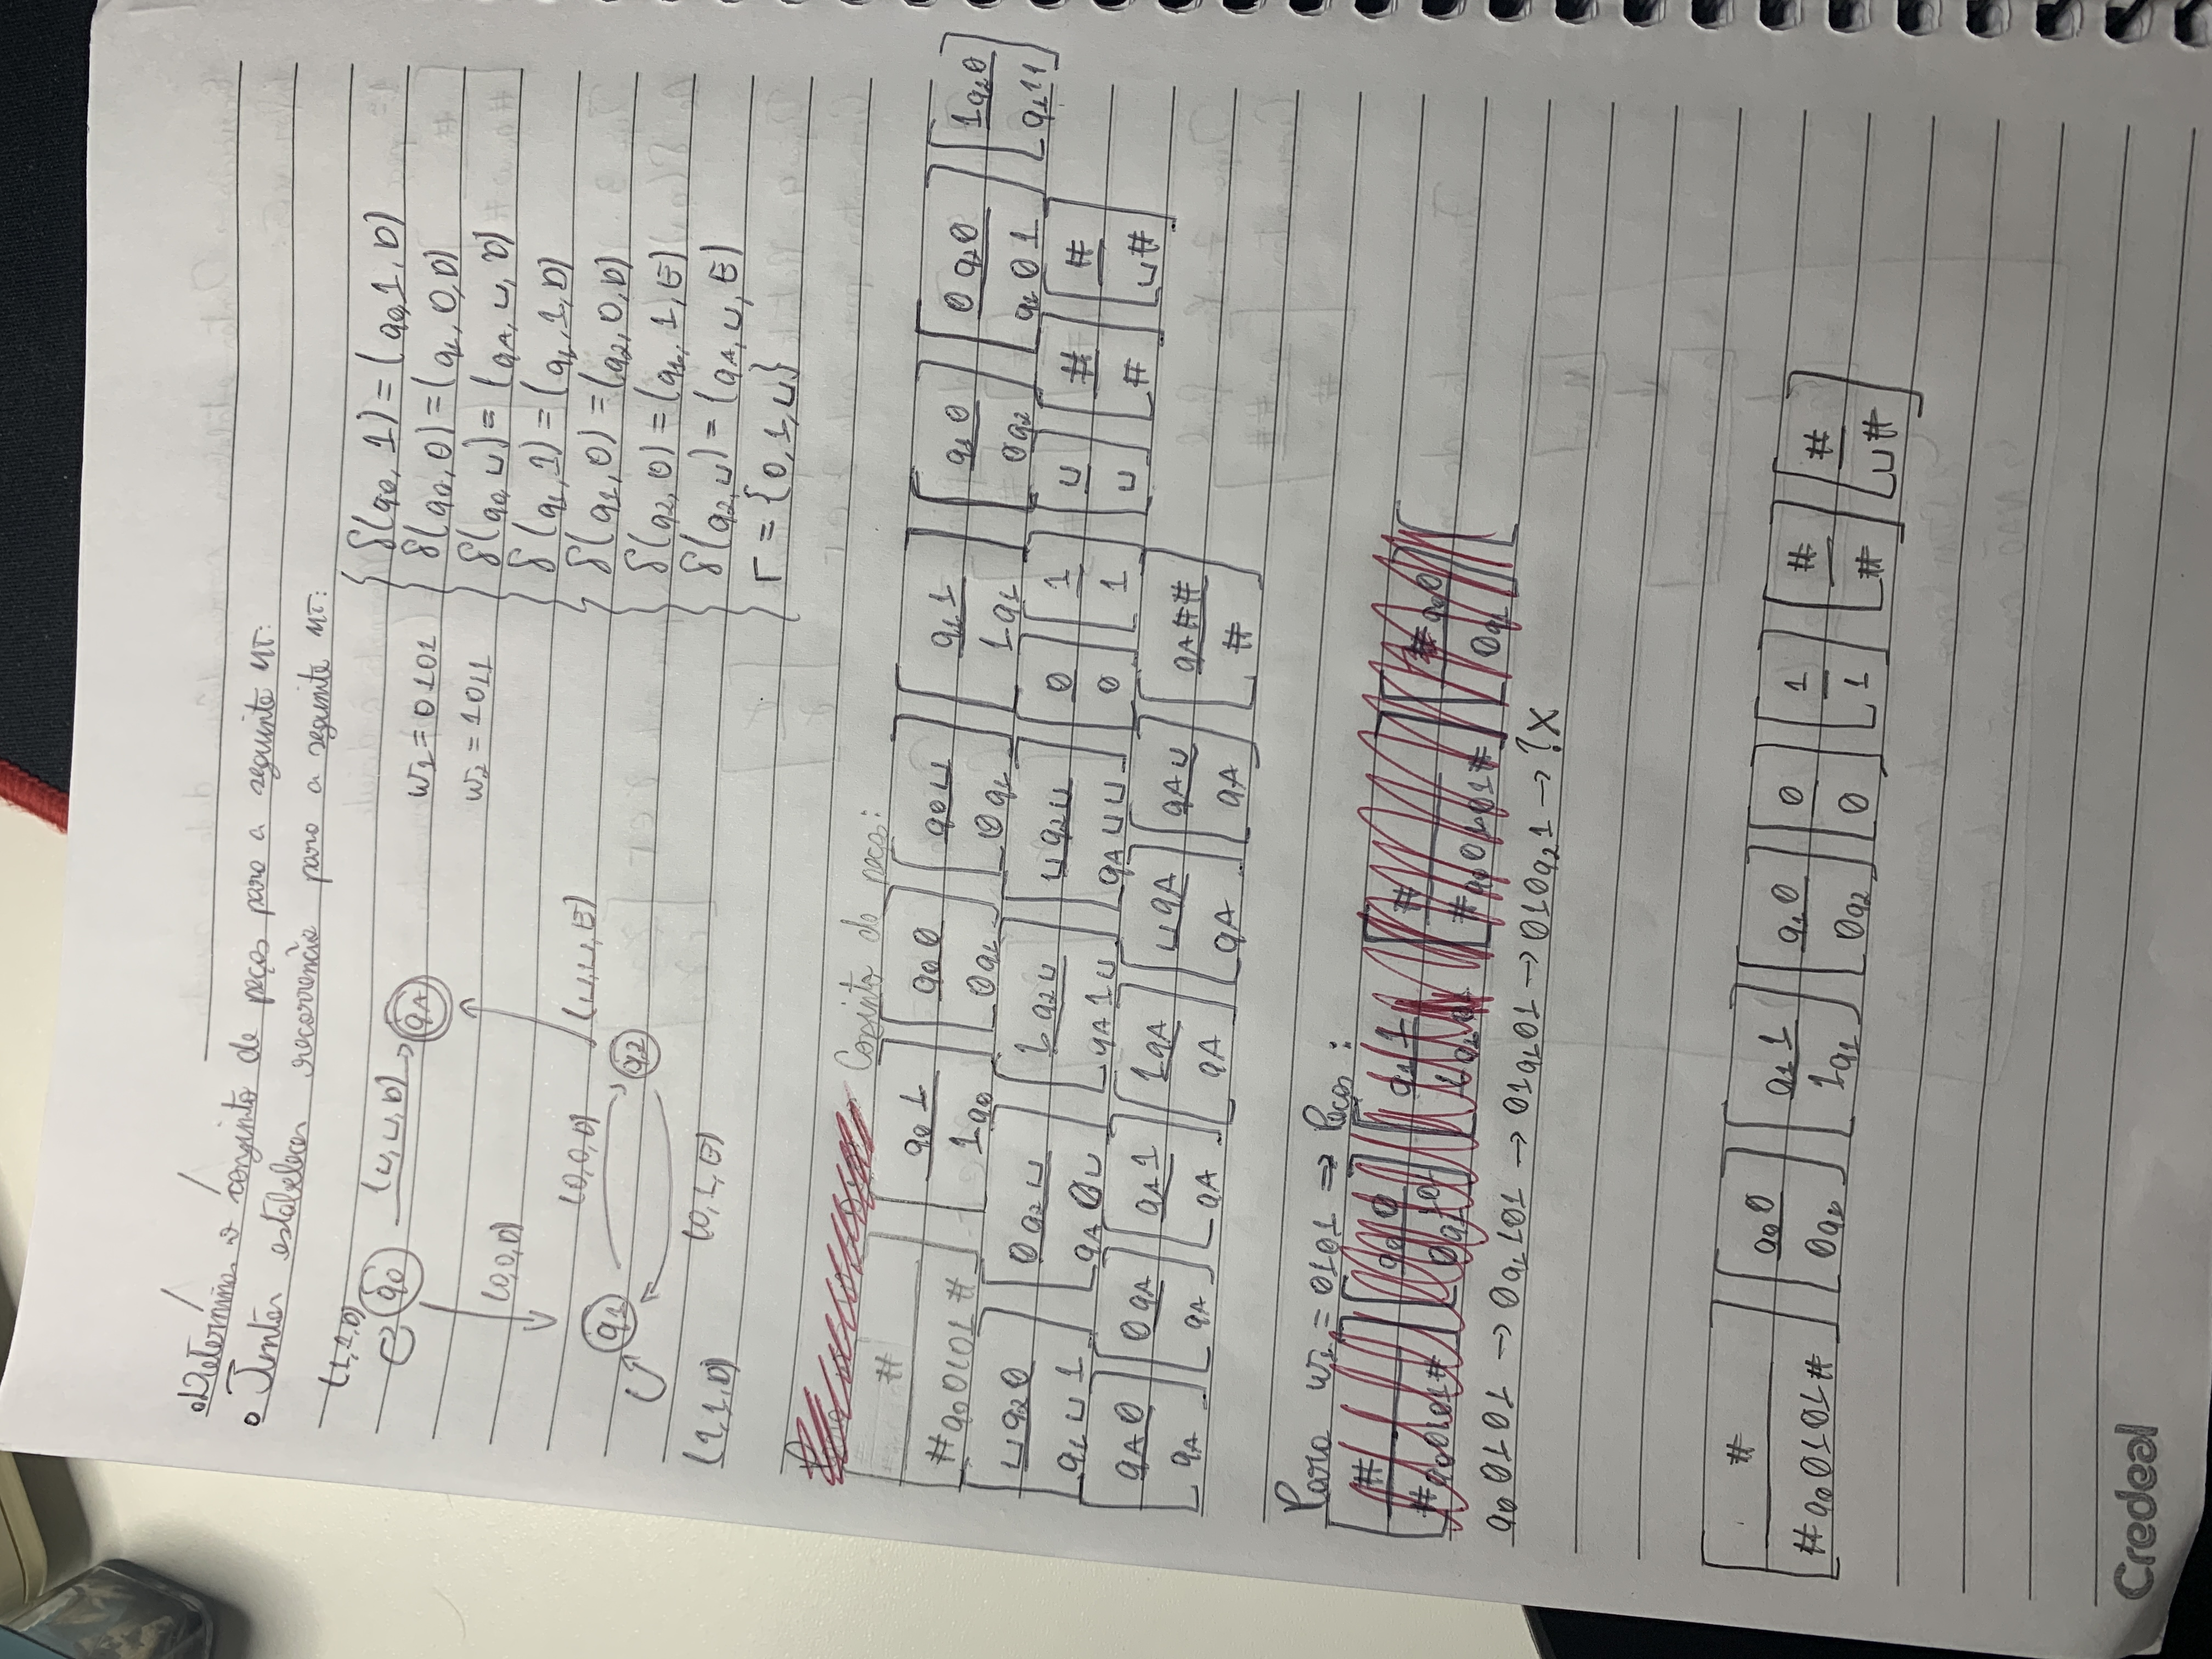 • Determinar o conjunto de peças para a seguinte MT:
• Tentar estabelecer recorrencia para a seguinte MT:
(1,1,D)
q0 (⊔,⊔,D) qA
w1 = 0101
w2 = 1011
(0,0,D)
(0,0,D) (⊔,⊔,E)
q1 q2
(0,1,E)
(1,1,D)
δ(q0, 1) = (q0, 1, D)
δ(q0, 0) = (q1, 0, D)
δ(q0, ⊔) = (qA, ⊔, D)
δ(q1, 1) = (q1, 1, D)
δ(q1, 0) = (q2, 0, D)
δ(q2, 0) = (q1, 1, E)
δ(q2, ⊔) = (qA, ⊔, E)
Γ = {0, 1, ⊔}
Cojinto de peças:
[# / #q00101#] [q01 / 1q0] [q00 / 0q1] [q0⊔ / 0q1] [q11 / 1q1] [q10 / 0q2] [0q20 / q101] [1q20 / q111]
[⊔q20 / q1⊔1] [0q2⊔ / qA0⊔] [1q2⊔ / qA1⊔] [⊔q2⊔ / qA⊔⊔] [0 / 0] [1 / 1] [⊔ / ⊔] [# / #] [# / ⊔#]
[qA0 / qA] [0qA / qA] [qA1 / qA] [1qA / qA] [⊔qA / qA] [qA⊔ / qA] [qA## / #]
Para w1 = 0101 ⇒ Peças:
q00101 → 0q1101 → 01q101 → 010q21 → ? X
[# / #q00101#] [q00 / 0q1] [q11 / 1q1] [q10 / 0q2] [0 / 0] [1 / 1] [# / #] [# / ⊔#]
Credeal